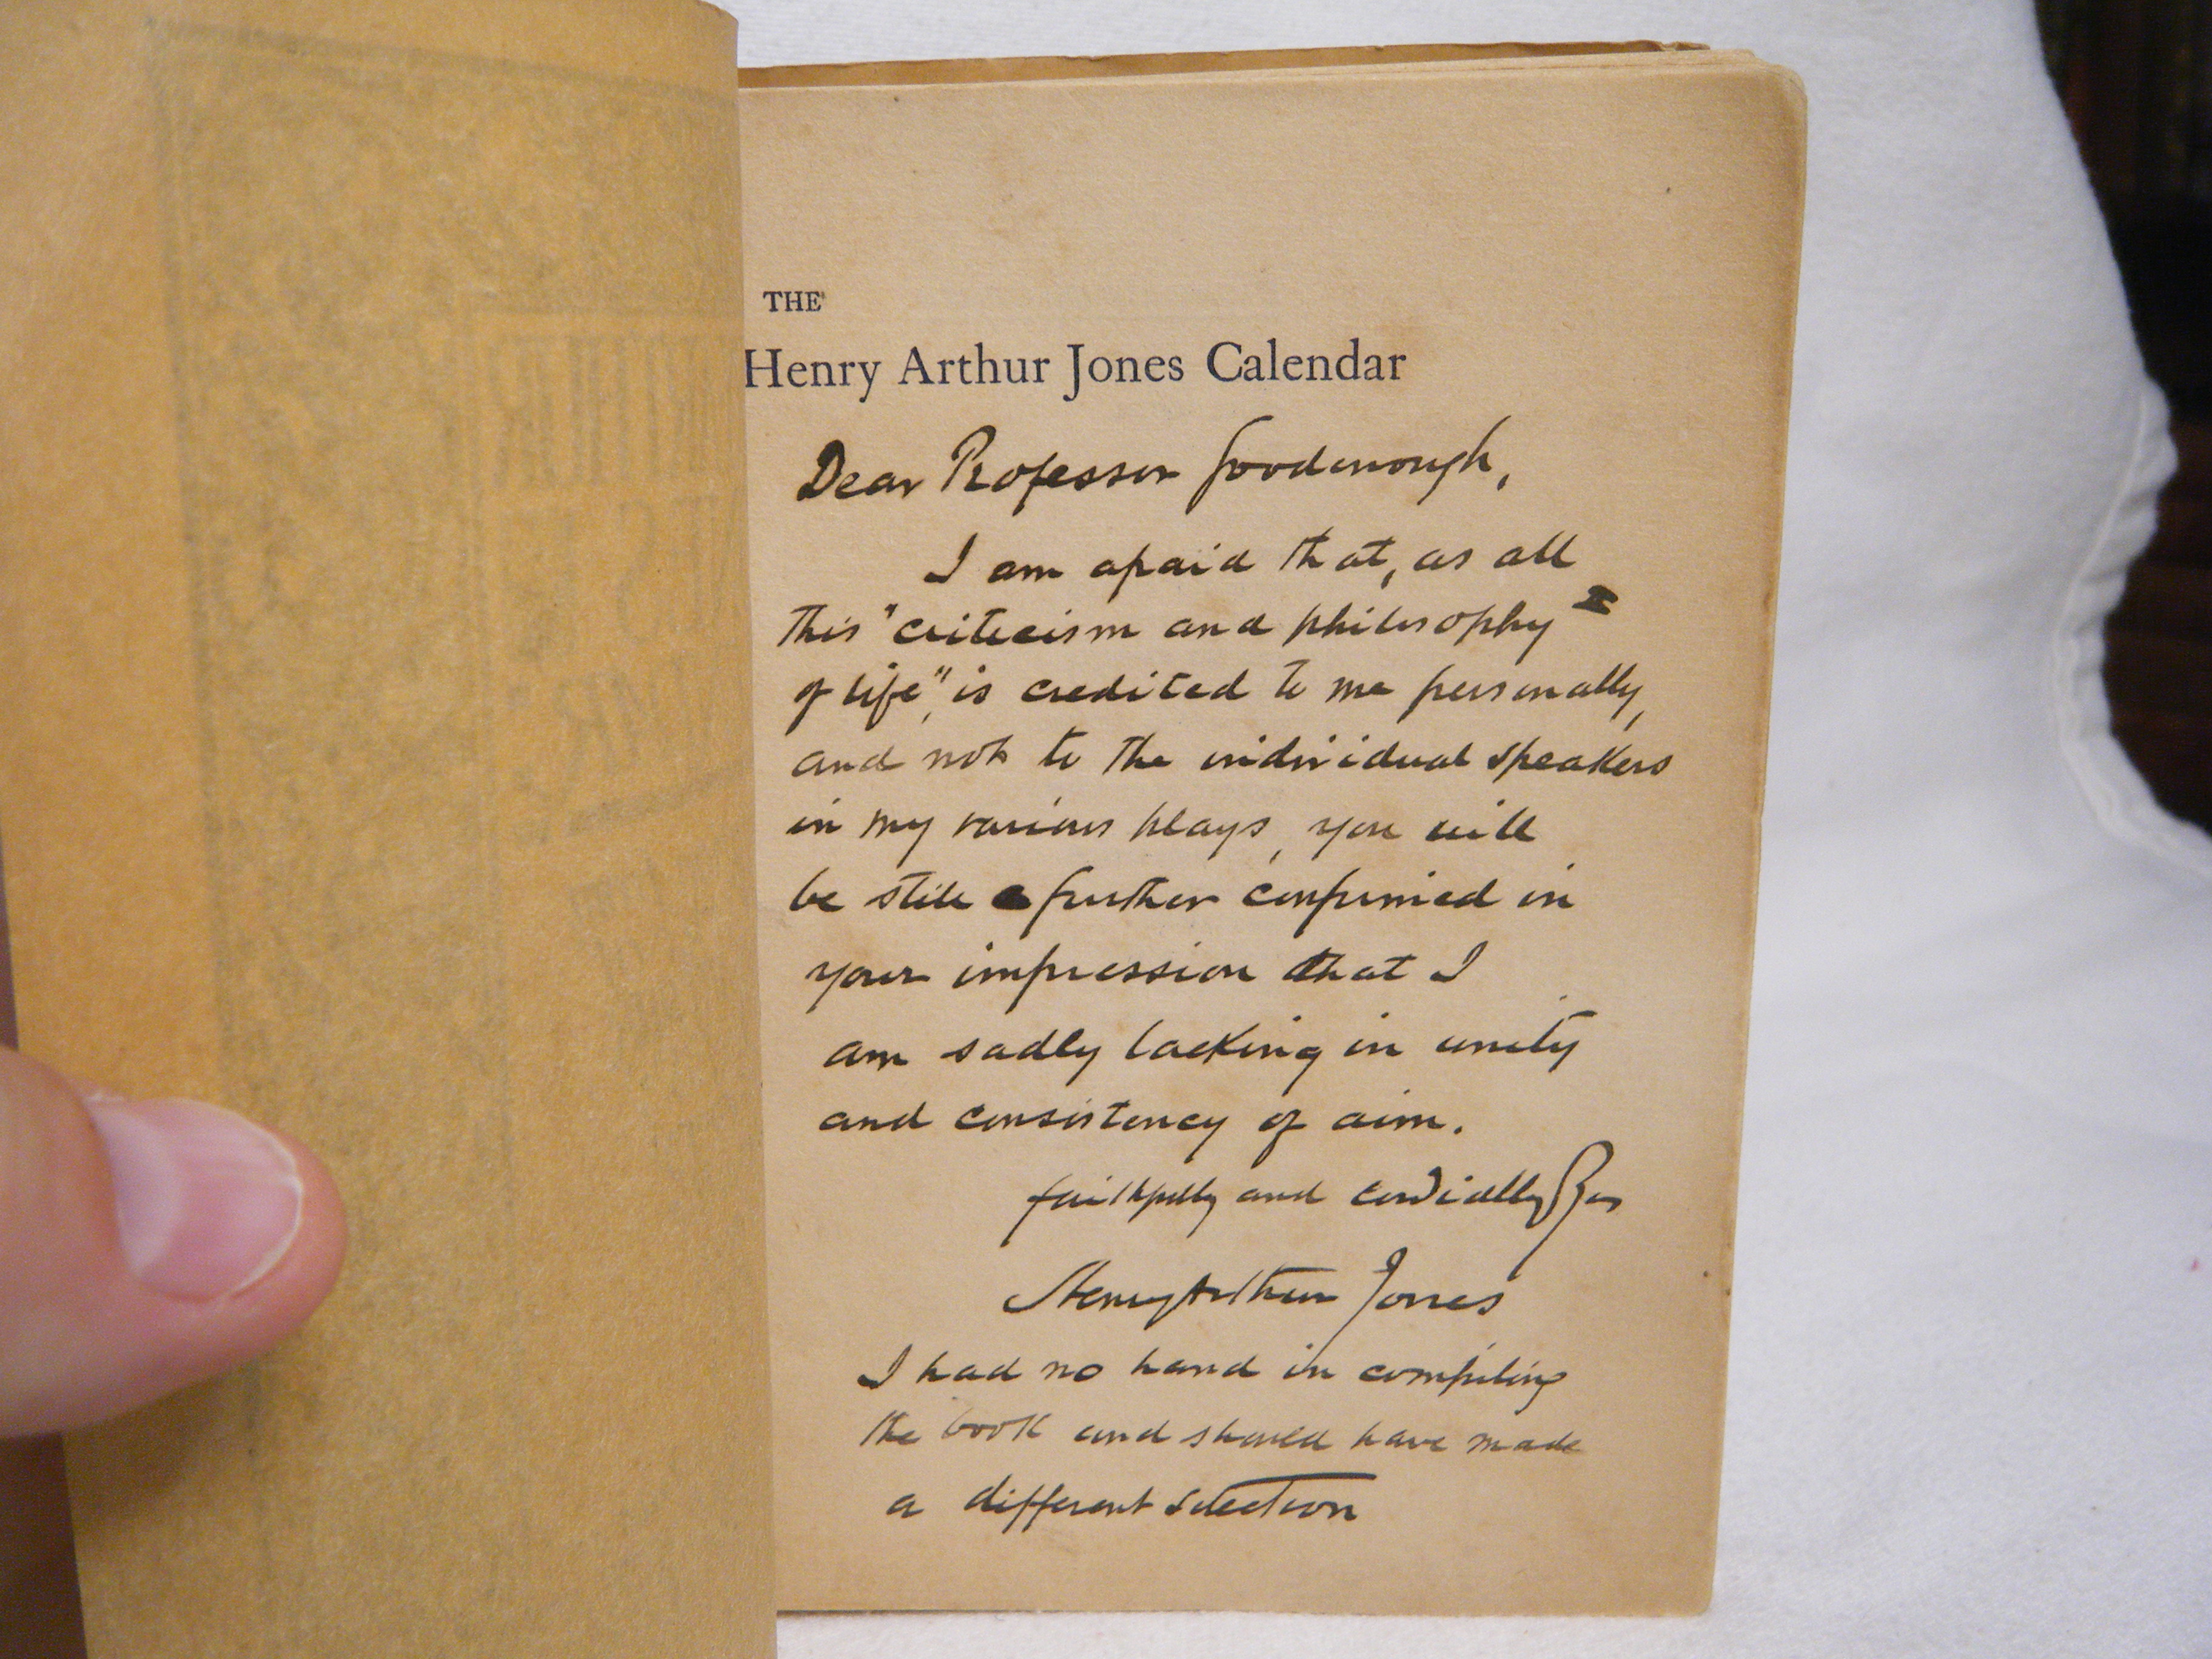 THE
Henry Arthur Jones Calendar
Dear Professor Goodenough,
I am afraid that, as all
this "criticism and philosophy
of life", is credited to me personally,
and not to the individual speakers
in my various plays, you will
be still further confirmed in
your impression that I
am sadly lacking in unity
and consistency of aim.
faithfully and cordially Yrs
Henry Arthur Jones
I had no hand in compiling
the book and should have made
a different selection